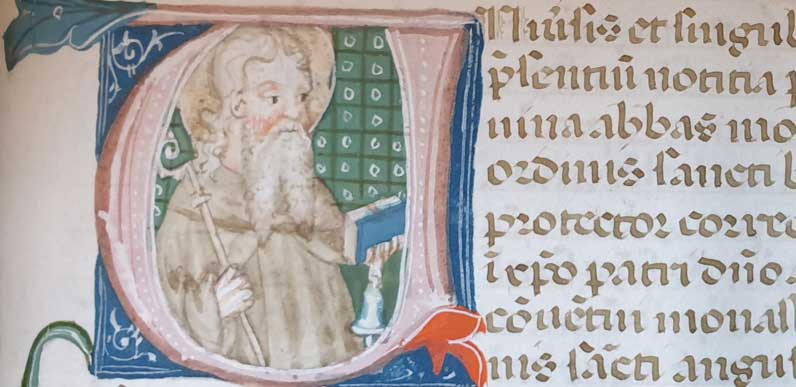 UNiūsis et singul
p̄sentiū notitia p
mina abbas mo
ordinis sancti b
protector correc
ī xp̄o patri dn̄o
cōuētui monast
nis sācti angus